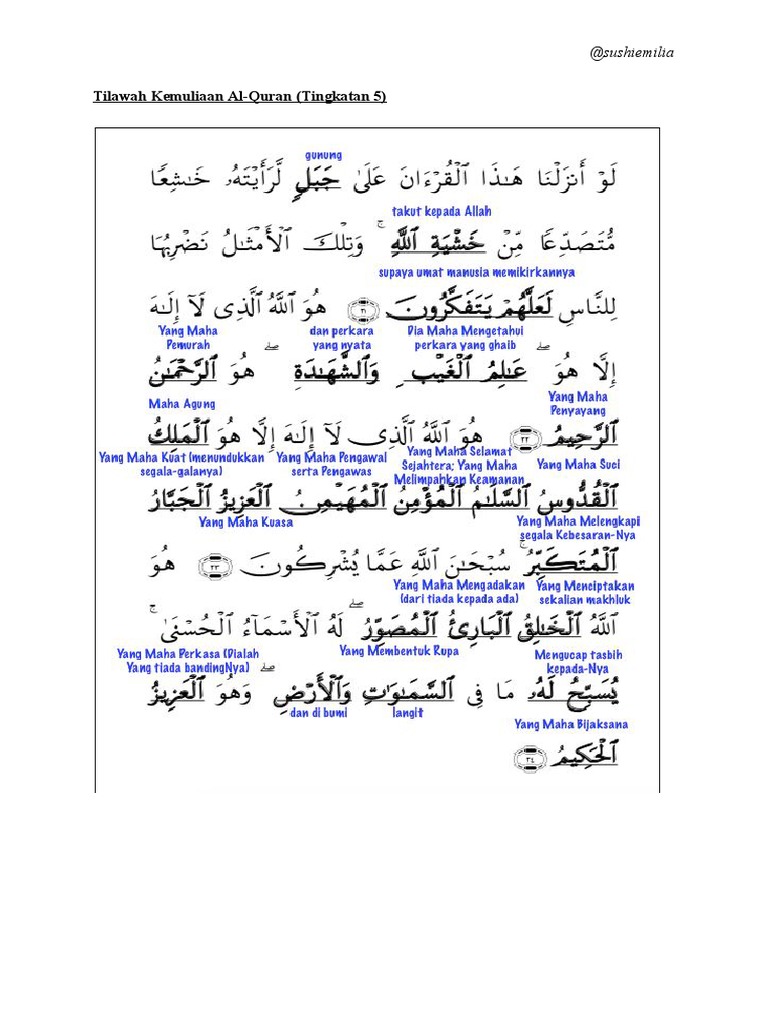 @sushiemilia
Tilawah Kemuliaan Al-Quran (Tingkatan 5)
gunung
لَوْ أَنزَلْنَا هَـٰذَا ٱلْقُرْءَانَ عَلَىٰ جَبَلٍ لَّرَأَيْتَهُۥ خَـٰشِعًا
takut kepada Allah
مُّتَصَدِّعًا مِّنْ خَشْيَةِ ٱللَّهِ ۚ وَتِلْكَ ٱلْأَمْثَـٰلُ نَضْرِبُهَا
supaya umat manusia memikirkannya
لِلنَّاسِ لَعَلَّهُمْ يَتَفَكَّرُونَ ٢١ هُوَ ٱللَّهُ ٱلَّذِى لَآ إِلَـٰهَ
Yang Maha Pemurah dan perkara yang nyata Dia Maha Mengetahui perkara yang ghaib
إِلَّا هُوَ ۖ عَـٰلِمُ ٱلْغَيْبِ وَٱلشَّهَـٰدَةِ ۖ هُوَ ٱلرَّحْمَـٰنُ
Maha Agung Yang Maha Penyayang
ٱلرَّحِيمُ ٢٢ هُوَ ٱللَّهُ ٱلَّذِى لَآ إِلَـٰهَ إِلَّا هُوَ ٱلْمَلِكُ
Yang Maha Kuat (menundukkan segala-galanya) Yang Maha Pengawal serta Pengawas Yang Maha Selamat Sejahtera; Yang Maha Melimpahkan Keamanan Yang Maha Suci
ٱلْقُدُّوسُ ٱلسَّلَـٰمُ ٱلْمُؤْمِنُ ٱلْمُهَيْمِنُ ٱلْعَزِيزُ ٱلْجَبَّارُ
Yang Maha Kuasa Yang Maha Melengkapi segala Kebesaran-Nya
ٱلْمُتَكَبِّرُ ۚ سُبْحَـٰنَ ٱللَّهِ عَمَّا يُشْرِكُونَ ٢٣ هُوَ
Yang Maha Mengadakan (dari tiada kepada ada) Yang Menciptakan sekalian makhluk
ٱللَّهُ ٱلْخَـٰلِقُ ٱلْبَارِئُ ٱلْمُصَوِّرُ ۖ لَهُ ٱلْأَسْمَآءُ ٱلْحُسْنَىٰ ۚ
Yang Maha Perkasa (Dialah Yang tiada bandingNya) Yang Membentuk Rupa Mengucap tasbih kepada-Nya
يُسَبِّحُ لَهُۥ مَا فِى ٱلسَّمَـٰوَٰتِ وَٱلْأَرْضِ ۖ وَهُوَ ٱلْعَزِيزُ
dan di bumi langit Yang Maha Bijaksana
ٱلْحَكِيمُ ٢٤